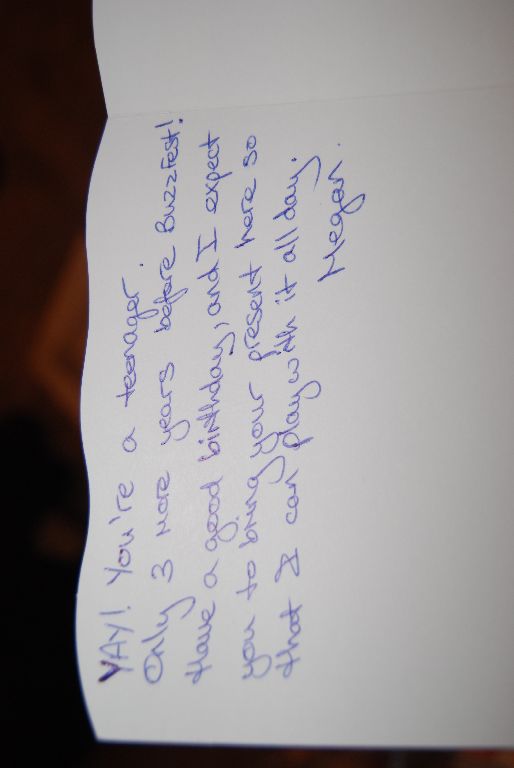 YAY! You're a teenager.
Only 3 more years before Buzzfest!
Have a good birthday, and I expect
you to bring your present here so
that I can play with it all day.
Megan.